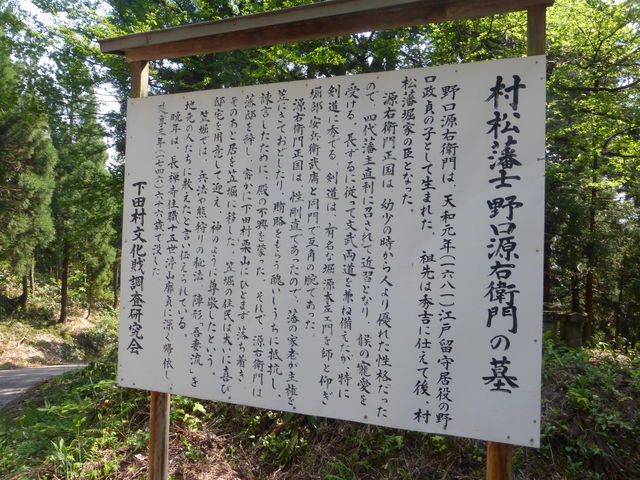 村松藩士 野口源右衛門の墓
野口源右衛門は、天和元年(一六八一)江戸留守居役の野
口政貞の子として生まれた。 祖先は秀吉に仕えて後、村
松藩堀家の臣となった。
源右衛門正国は、幼少の時から人より優れた性格だった
ので、四代藩主直利に召されて近習となり、候の寵愛を
受ける。長ずるに従って文武両道を兼ね備えたが、特に
剣道に秀でる。剣道は、有名な堀源太左エ門を師と仰ぎ
堀部安兵衛武庸と同門で互角の腕であった。
源右衛門正国は、性剛直であったので、藩の家老が主権を
笠にきておどしたり、賄賂をもらう醜いしうちに抵抗し、
諫言したために、殿の不興を蒙った。それで、源右衛門は
藩邸を辞し、密かに下田村栗山にひとまず落ち着き
そのあと居を笠堀に移した。笠堀の住民は大いに喜び
邸宅を用意して迎え、神のように尊崇したという。
笠堀では、兵法や熊狩りの秘法「陣形・吾妻流」を
地元の人たちに教えたと言い伝えられている。
晩年は、長禅寺住職十五世 山 貞に深く帰依
延享元年(一七四六)六十六歳で没した。
下田村文化財調査研究会